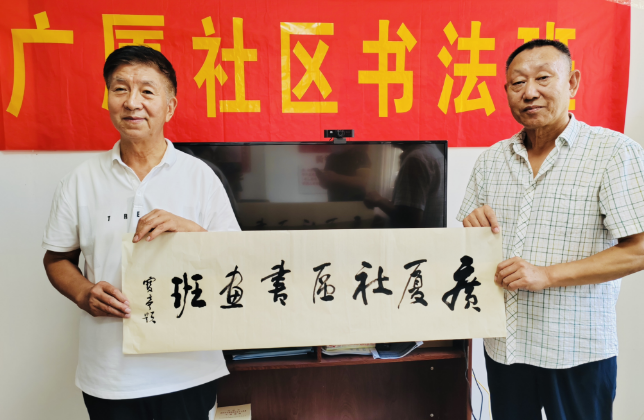 广厦社区书法班
T R E
廣厦社區書画班